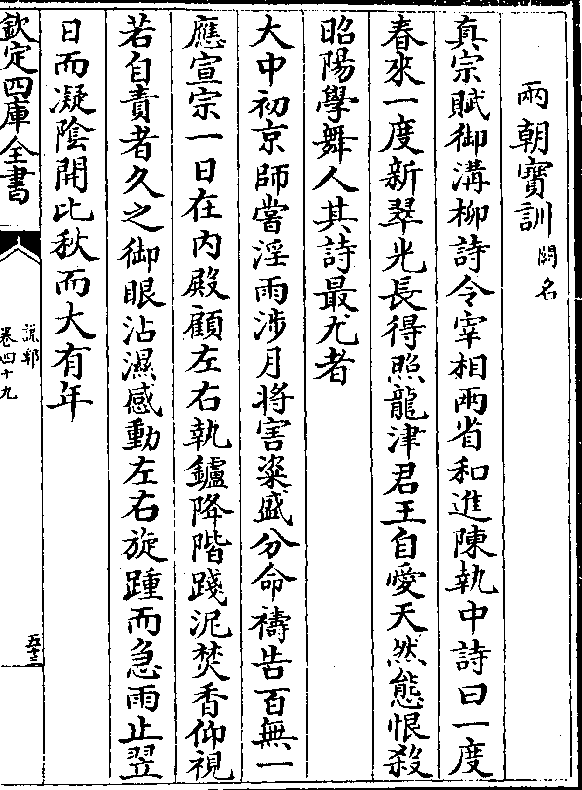 兩朝寶訓 闕名
真宗賦御溝柳詩令宰相兩省和進陳執中詩曰一度
春來一度新翠光長得照龍津君王自愛天然態恨殺
昭陽學舞人其詩最尤者
大中初京師嘗淫雨涉月將害粢盛分命禱告百無一
應宣宗一日在內殿顧左右執鑪降階踐泥焚香仰視
若自責者久之御眼沾濕感動左右旋踵而急雨止翌
日而凝陰開比秋而大有年
欽定四庫全書
說郛
卷四十九
五十三